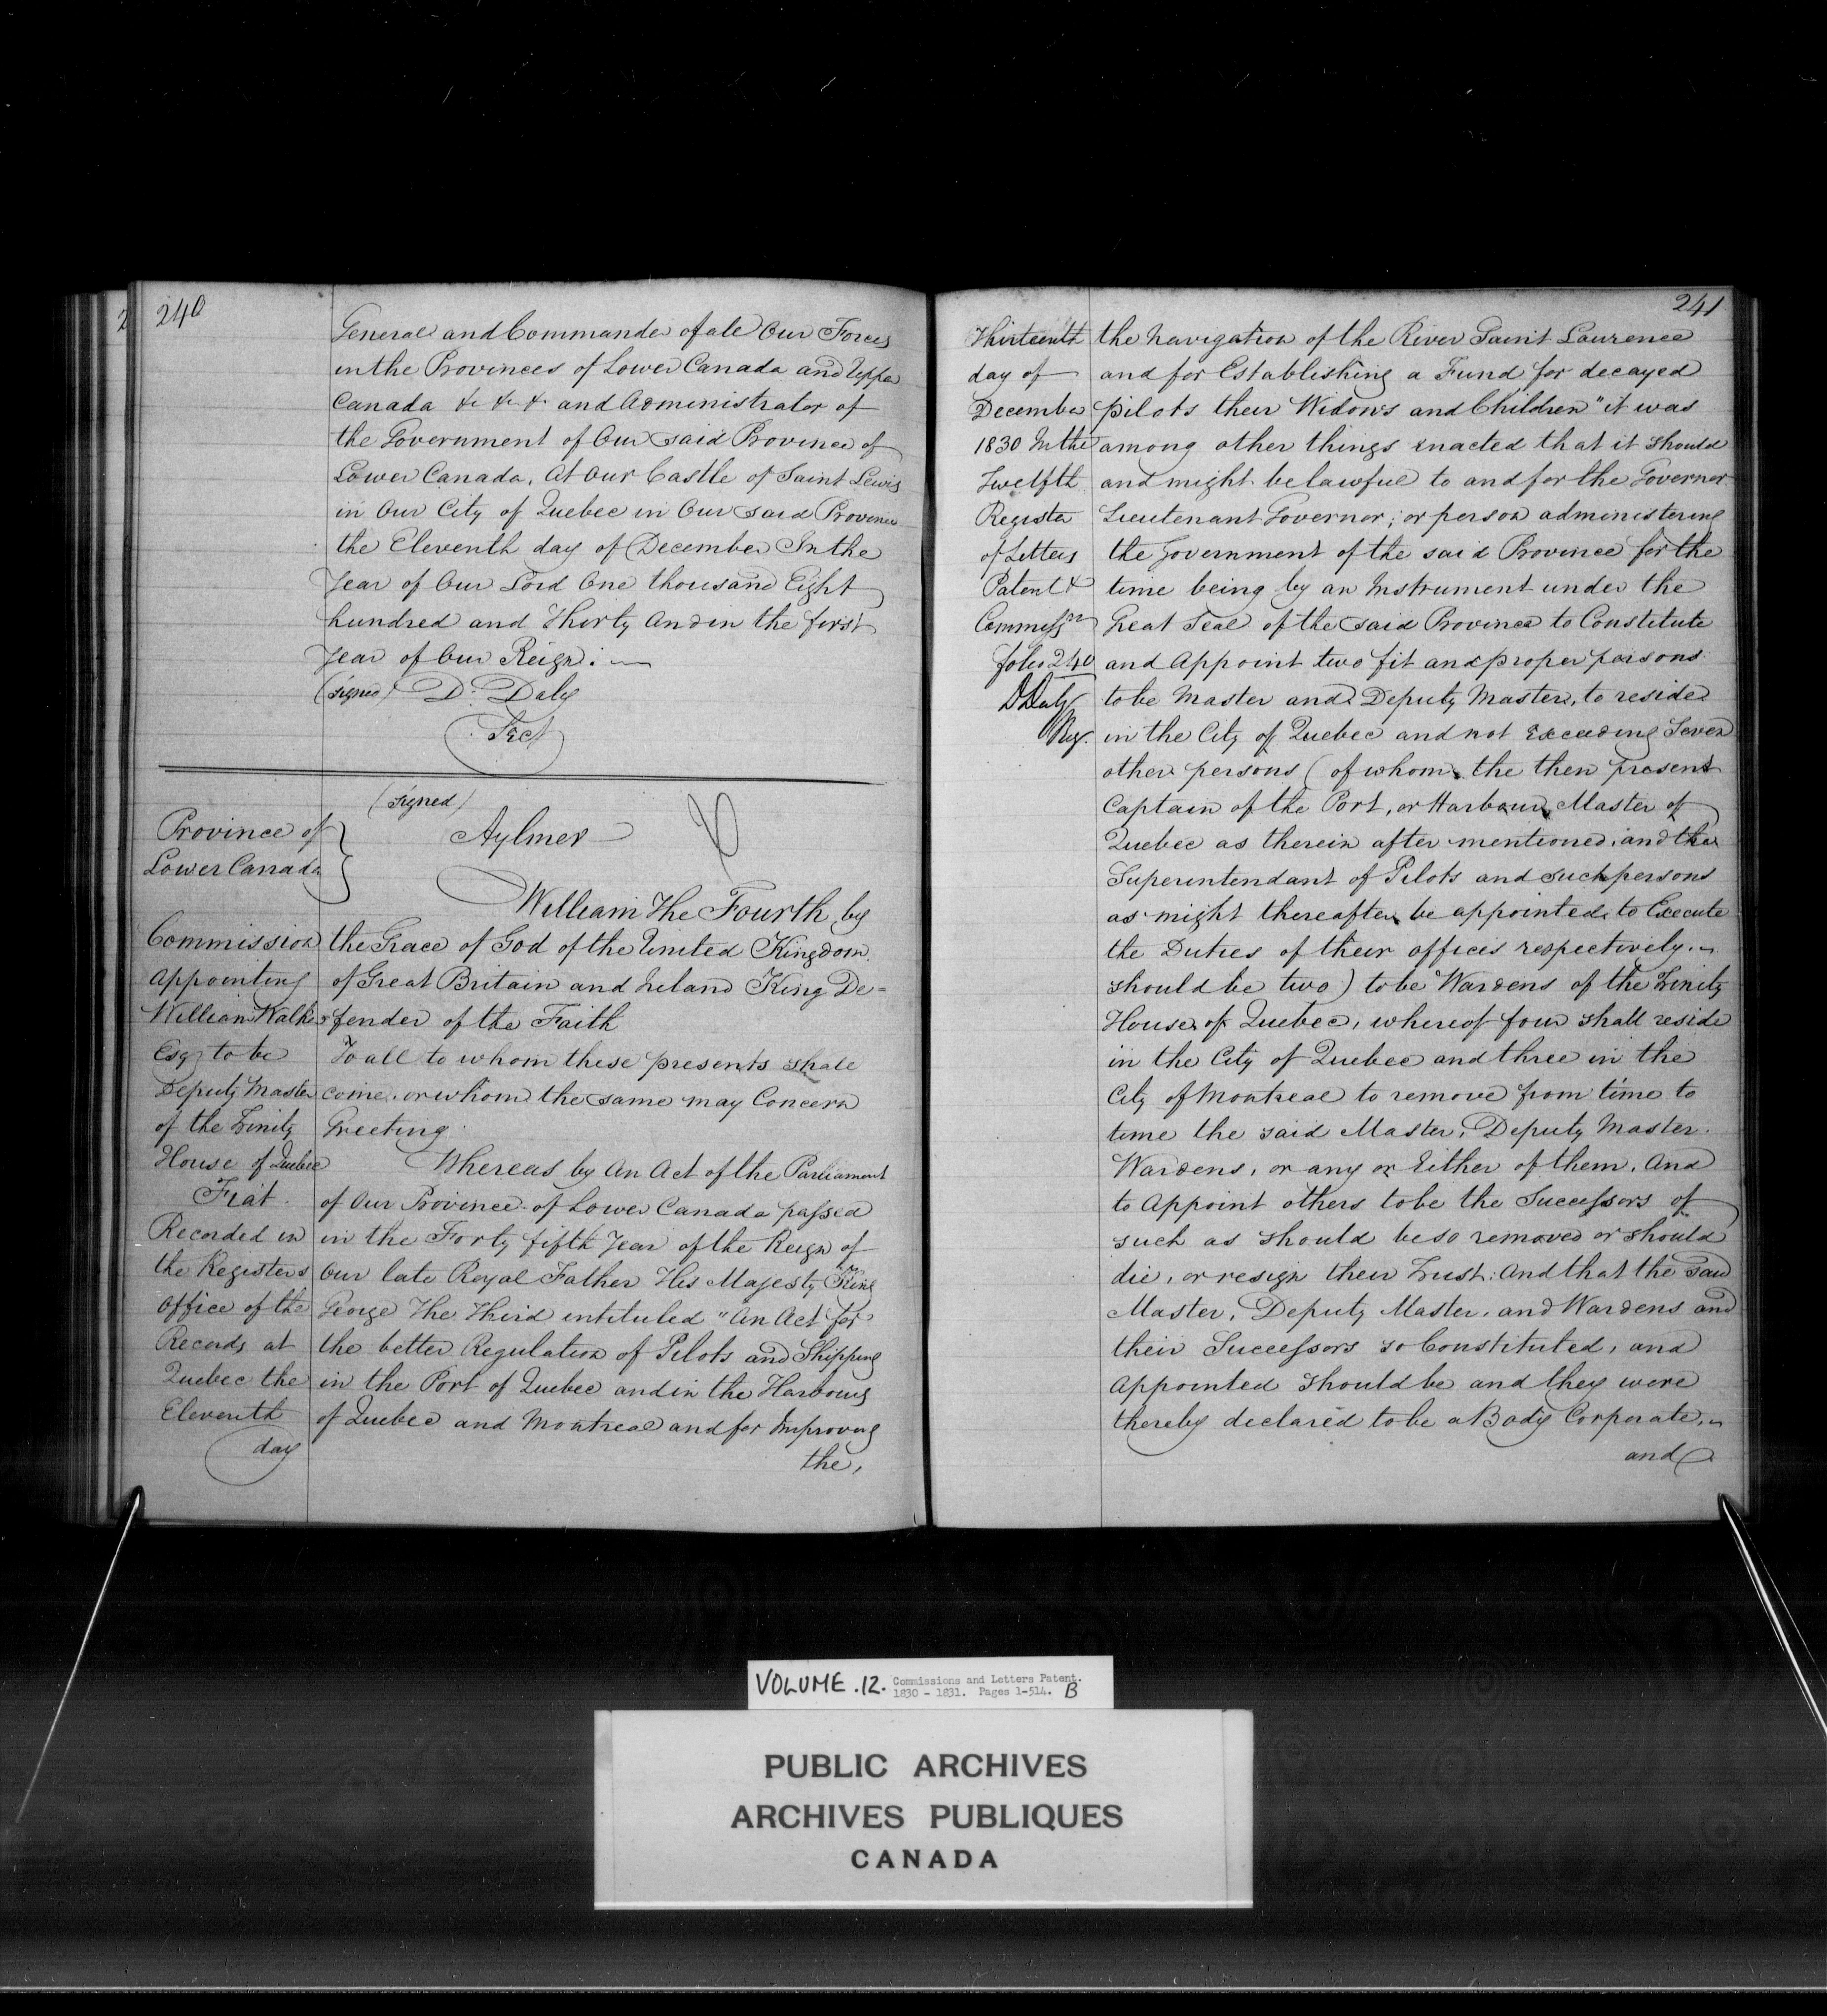 240
General and Commander of all Our Forces
in the Provinces of Lower Canada and Upper
Canada &c &c &c and Administrator of
the Government of Our said Province of
Lower Canada, At Our Castle of Saint Lewis
in Our City of Quebec in Our said Province
the Eleventh day of December In the
Year of Our Lord One thousand Eight
hundred and Thirty And in the first
Year of Our Reign.
(signed) D. Daly
Secy
(signed)
Aylmer
Province of
Lower Canada
William The Fourth by
the Grace of God of the United Kingdom
of Great Britain and Ireland King De=
fender of the Faith
To all to whom these presents shall
come, or whom the same may Concern
Greeting.
Whereas by An Act of the Parliament
of Our Province of Lower Canada passed
in the Forty fifth Year of the Reign of
Our late Royal Father His Majesty King
George The Third intituled "An Act for
the better Regulation of Pilots and Shipping
in the Port of Quebec and in the Harbours
of Quebec and Montreal and for Improving
the,
Commission
Appointing
William Walker
Esqr to be
Deputy Master
of the Trinity
House of Quebec
Fiat.
Recorded in
the Registers
Office of the
Records at
Quebec the
Eleventh
day
241
Thirteenth
day of
December
1830 In the
Twelfth
Register
of Letters
Patent &
Commissns
folio 240
DDaly
Reg.
the Navigation of the River Saint Laurence
and for Establishing a Fund for decayed
pilots their Widows and Children" it was
among other things enacted that it should
and might be lawful to and for the Governor
Lieutenant Governor, or person administering
the Government of the said Province for the
time being by an Instrument under the
Great Seal of the said Province to Constitute
and Appoint two fit and proper persons
to be Master and Deputy Master, to reside
in the City of Quebec and not Exceeding Seven
other persons (of whom the then present
Captain of the Port, or Harbour Master of
Quebec as therein after mentioned, and the
Superintendant of Pilots and such persons
as might thereafter be appointed to Execute
the Duties of their offices respectively.
should be two) to be Wardens of the Trinity
House of Quebec, whereof four shall reside
in the City of Quebec and three in the
City of Montreal to remove from time to
time the said Master, Deputy Master
Wardens, or any or Either of them, And
to Appoint others to be the Successors of
such as should be so removed or should
die, or resign their Trust: And that the said
Master, Deputy Master, and Wardens and
their Successors so Constituted, and
Appointed should be and they were
thereby declared to be a Body Corporate,
and
VOLUME.12. Commissions and Letters Patent.
1830 - 1831. Pages 1-514. B
PUBLIC ARCHIVES
ARCHIVES PUBLIQUES
CANADA